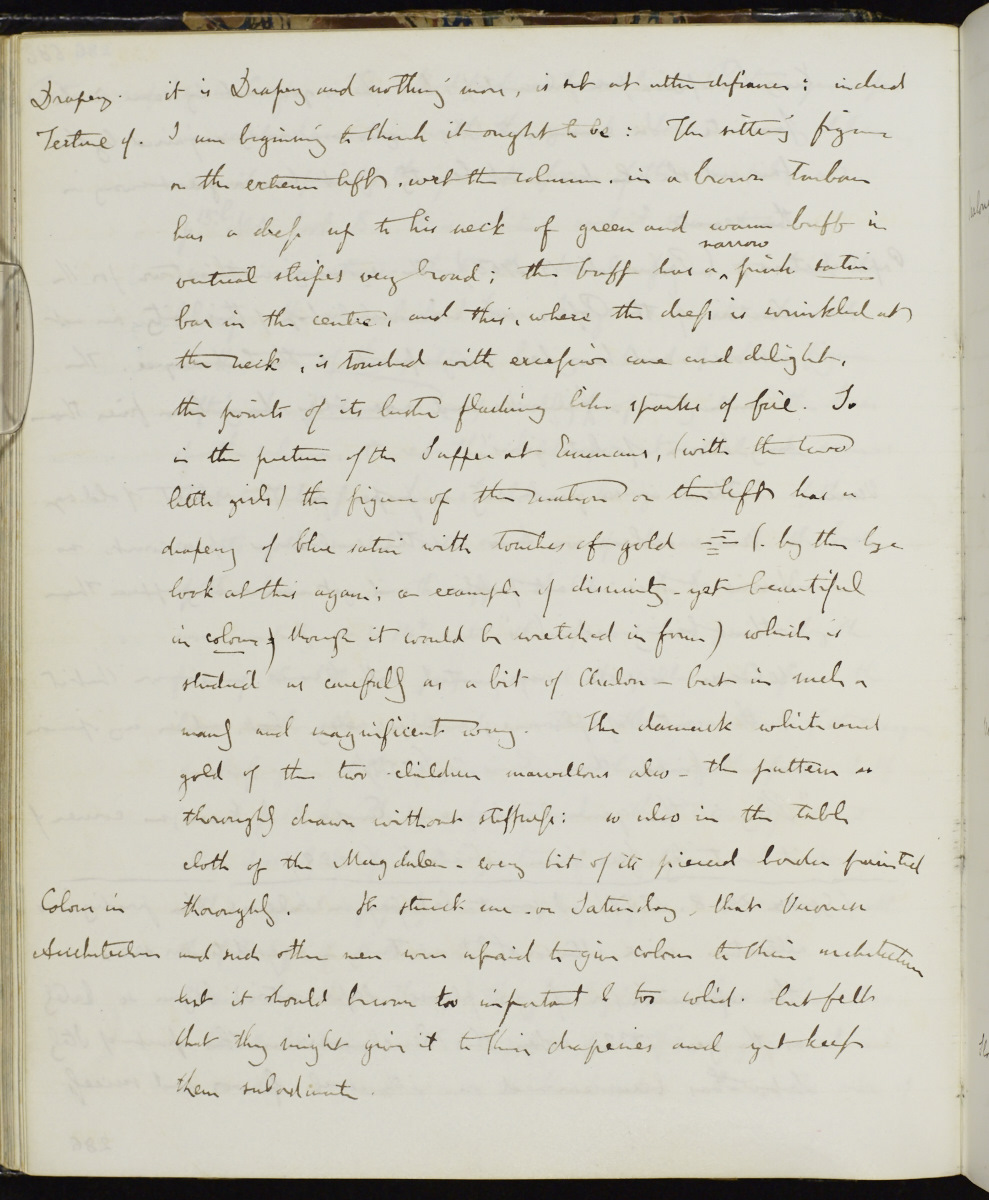 Drapery. it is Drapery and nothing more, is set at utter defiance: indeed
Texture of. I am beginning to think it ought to be: The sitting figure
on the extreme left, next the column, in a brown turban
has a dress up to his neck of green and warm buff in
narrow
vertical stripes very broad; the buff has a ‸ pink satin
bar in the centre; and this, where the dress is wrinkled at
the neck, is touched with excessive care and delight,
the points of its lustre flashing like sparks of fire. So
in the picture of the Supper at Emmaus, (with the two
little girls) the figure of the matron on the left has a
drapery of blue satin with touches of gold (. by the bye
look at this again; an example of disunity - yet beautiful
in colour, though it would be wretched in form) which is
studied as carefully as a bit of Chalon - but in such a
manly and magnificent way. The damask white and
gold of the two children marvellous also - the pattern so
thoroughly drawn without stiffness: so also in the table
cloth of the Magdalen - every bit of its pierced border painted
Colour in thoroughly. It struck me on Saturday, that Veronese
Architecture and such other men were afraid to give colour to their architecture
lest it should become too important & too solid. but felt
that they might give it to their draperies and yet keep
them subordinate.